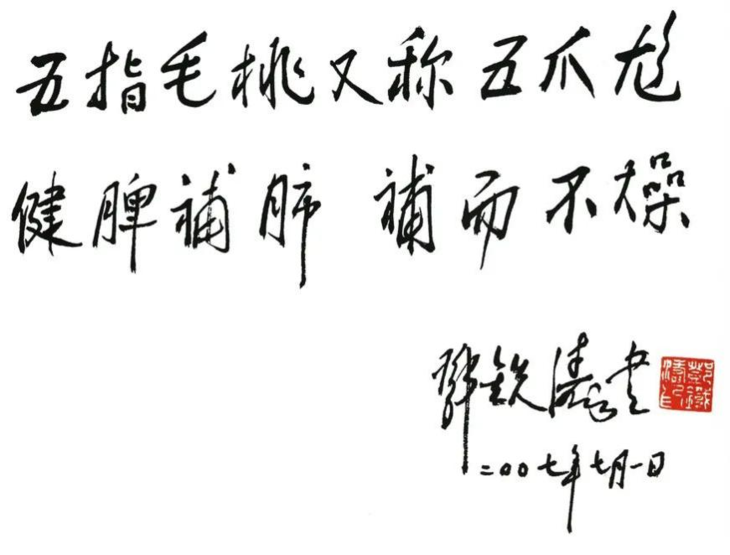 五指毛桃又称五爪尨
健脾補肺 補而不燥
鄧鉄濤书
二00七年七月一日